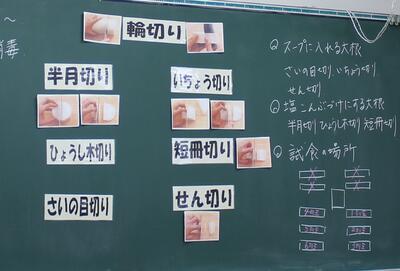 〜
消毒
輪切り
半月切り
いちょう切り
ひょうし木切り
短冊切り
さいの目切り
せん切り
スープに入れる大根
さいの目切り、いちょう切り
せん切り
塩こんぶづけにする大根
半月切り ひょうし木切り 短冊切り
試食の場所